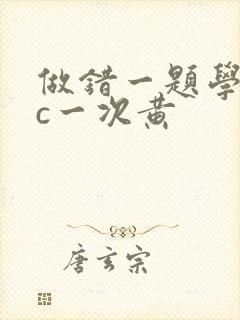 做錯一題學
c一次黃
唐玄宗